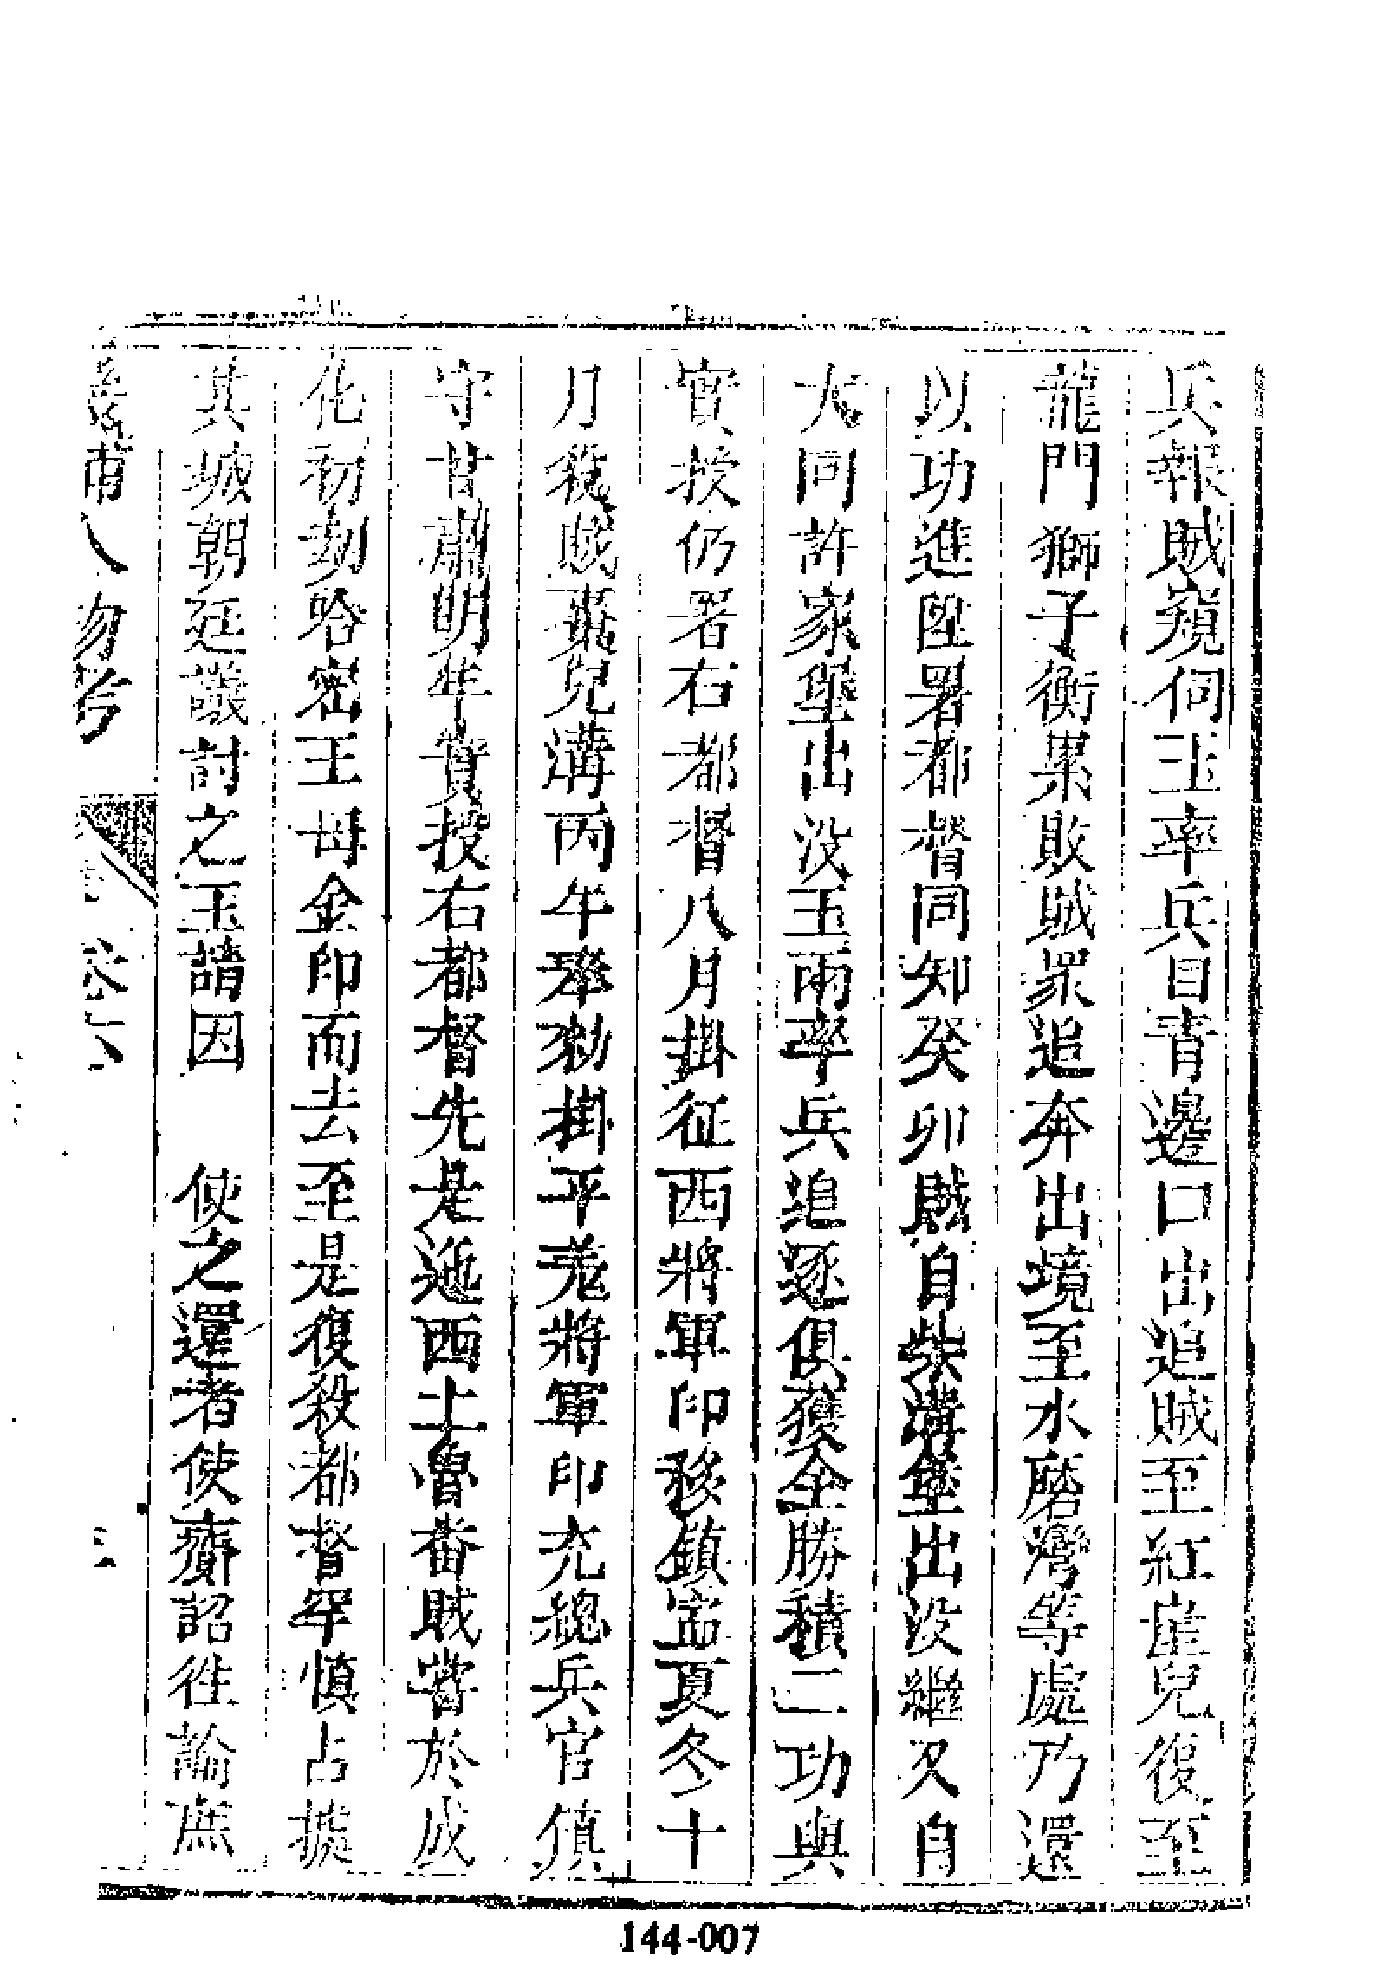 兵報賊窺伺玉率兵自青邊口出追賊至紅崖兒復至
龍門獅子衝累敗賊眾追奔出境至水磨灣等處乃還
以功進陞署都督同知癸卯賊自柴溝堡出没繼又自
大同許家堡出没玉兩率兵追逐俱獲全勝積二功與
實授仍署右都督八月掛征西將軍印移鎮寧夏冬十
月殺賊棗兒溝丙午奉勑掛平羌將軍印充總兵官鎮
守甘肅明年實授右都督先是迤西土魯番賊嘗於成
化初刼哈密王母金印而去至是復殺都督罕慎占㨿
其城朝廷議討之玉請因 使之還者使齎詔徃諭庶
南人物考 卷六 三
144-007